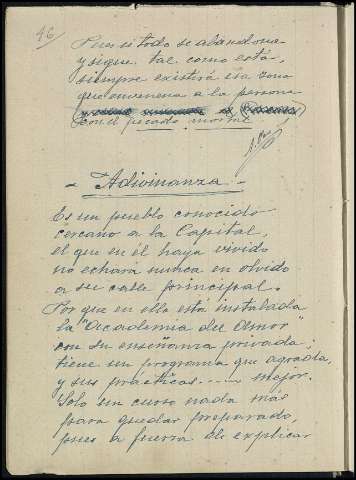 46
Pues si todo se abandona
y sigue tal como está,
siempre existirá esa zona
que envenena a la persona
con el pecado mortal
- Adivinanza -
Es un pueblo conocido
cercano a la Capital,
el que en él haya vivido
no echará nunca en olvido
a su calle principal.
Por que en ella está instalada
la "Academia del Amor"
con su enseñanza privada;
tiene un programa que agrada,
y sus prácticas..... mejor.
Solo un curso nada más
para quedar preparado,
pues a fuerza de explicar